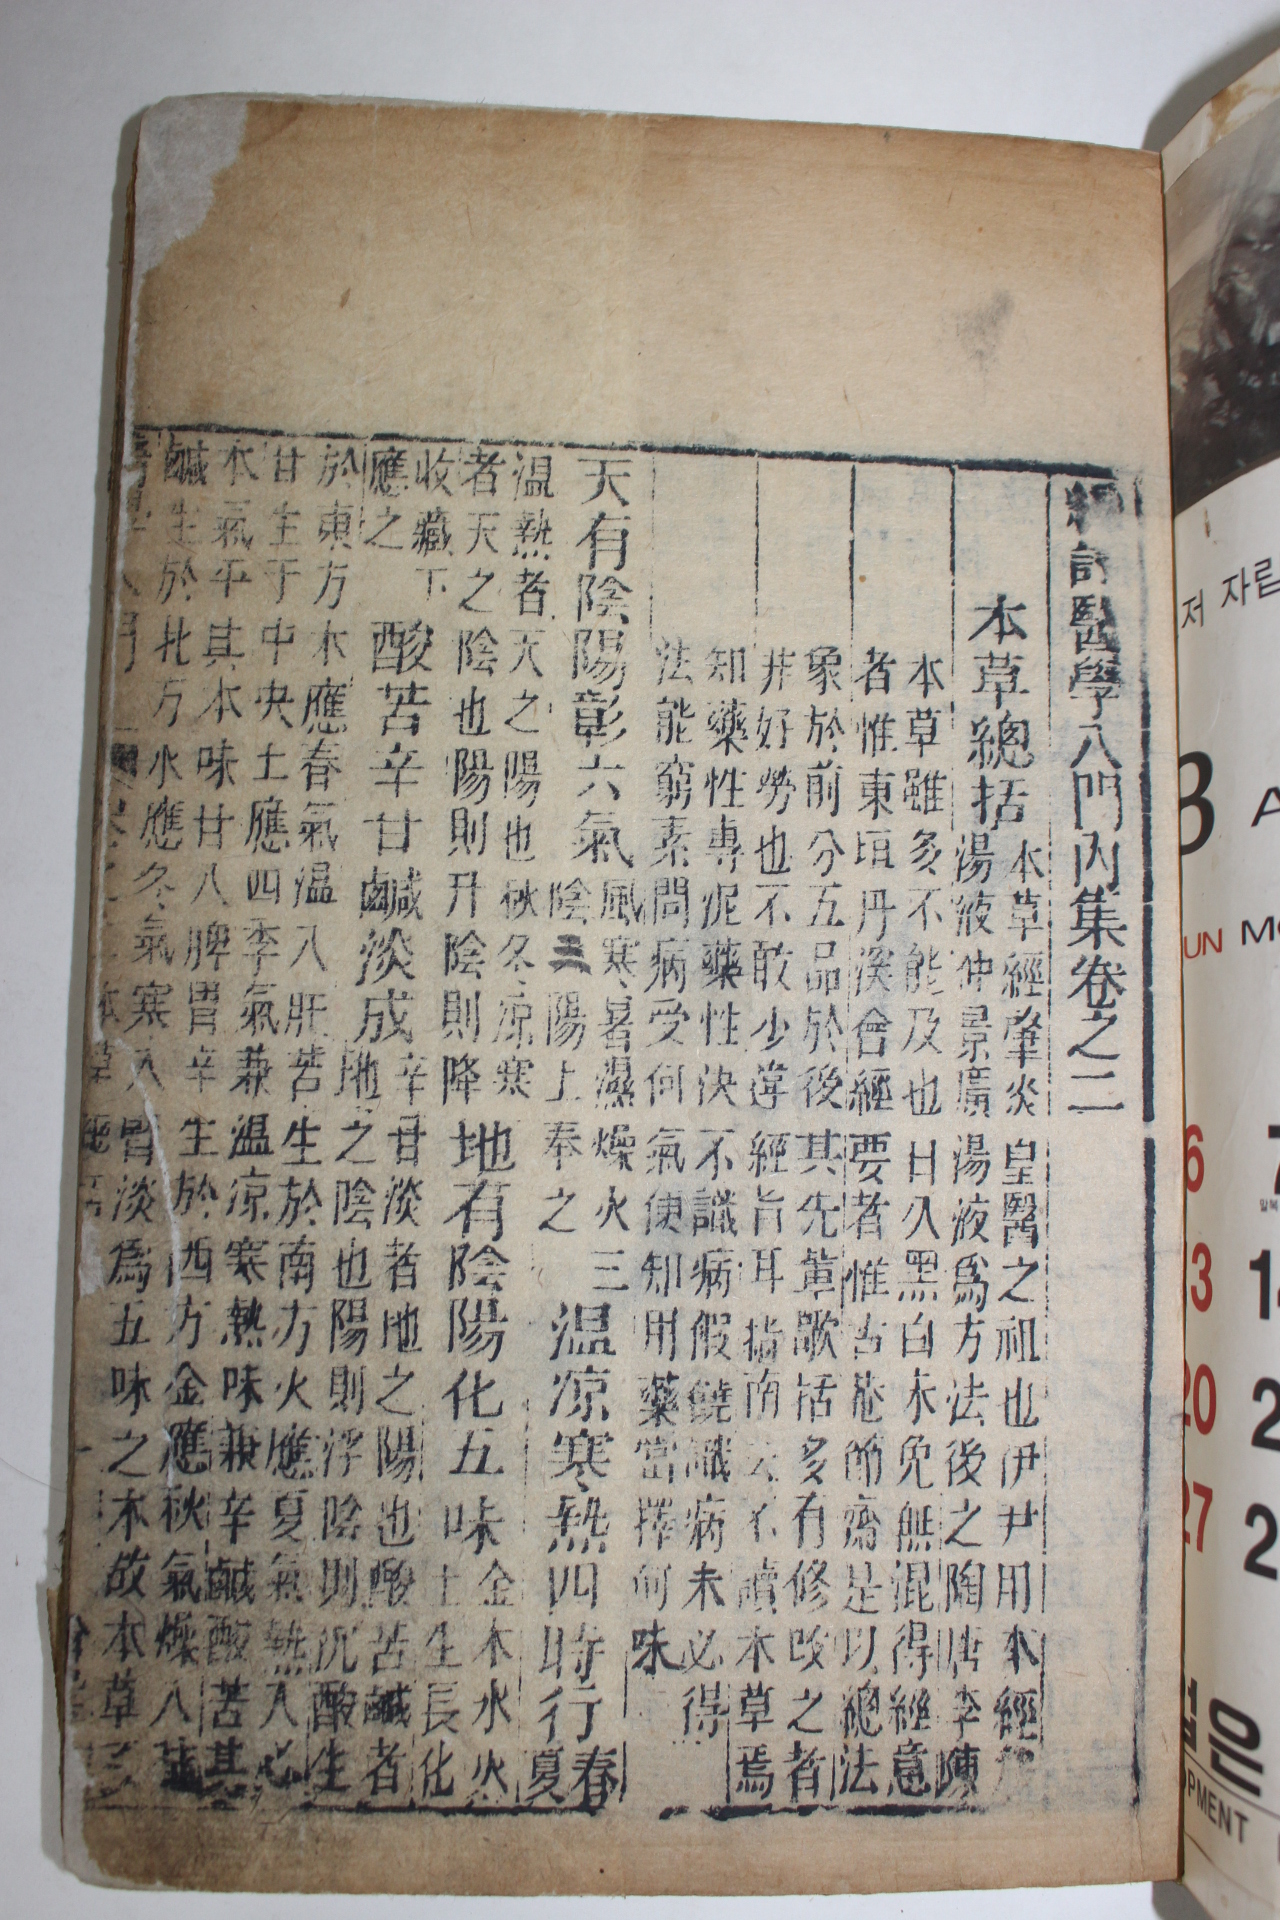 編註醫學入門內集卷之二
本草總括
本草經肇炎皇醫之祖也伊尹用本經
湯液仲景廣湯液爲方法後之陶唐李陳
本草雖多不能及也日久黑白未免無混得經意
者惟東垣丹溪會經要者惟古菴節齋是以總法
象於前分五品於後其先輩歌括多有修改之者
非好勞也不敢少違經旨耳指南云不讀本草焉
知藥性專泥藥性決不識病假饒識病未必得
法能窮素問病受何氣便知用藥當擇何味
天有陰陽彰六氣
風寒暑濕燥火三
陰三陽上奉之
溫凉寒熱四時行
春
夏
溫熱者天之陽也秋冬凉寒
者天之陰也陽則升陰則降
地有陰陽化五味
金木水火
土生長化
收藏下
應之
酸苦辛甘鹹淡成
辛甘淡者地之陽也酸苦鹹者
地之陰也陽則浮陰則沉酸生
於東方木應春氣溫入肝苦生於南方火應夏氣熱入心
甘生于中央土應四季氣兼溫凉寒熱味兼辛鹹酸苦其
本氣平其本味甘入脾胃辛生於西方金應秋氣燥入
鹹生於北方水應冬氣寒入腎淡爲五味之本故本草
저 자립
UN
6
13
20
27
은
OPMENT